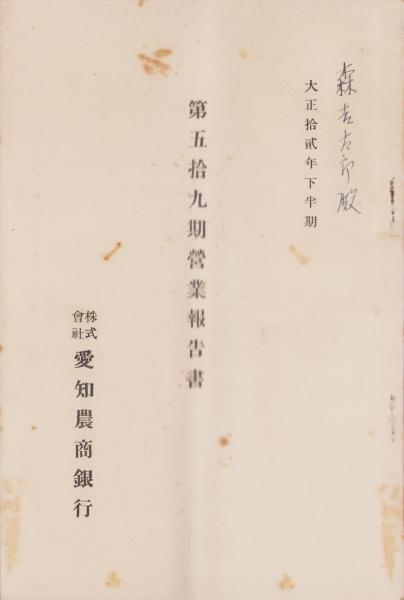 森吉太郎殿
大正拾貳年下半期
第五拾九期營業報告書
株式會社愛知農商銀行